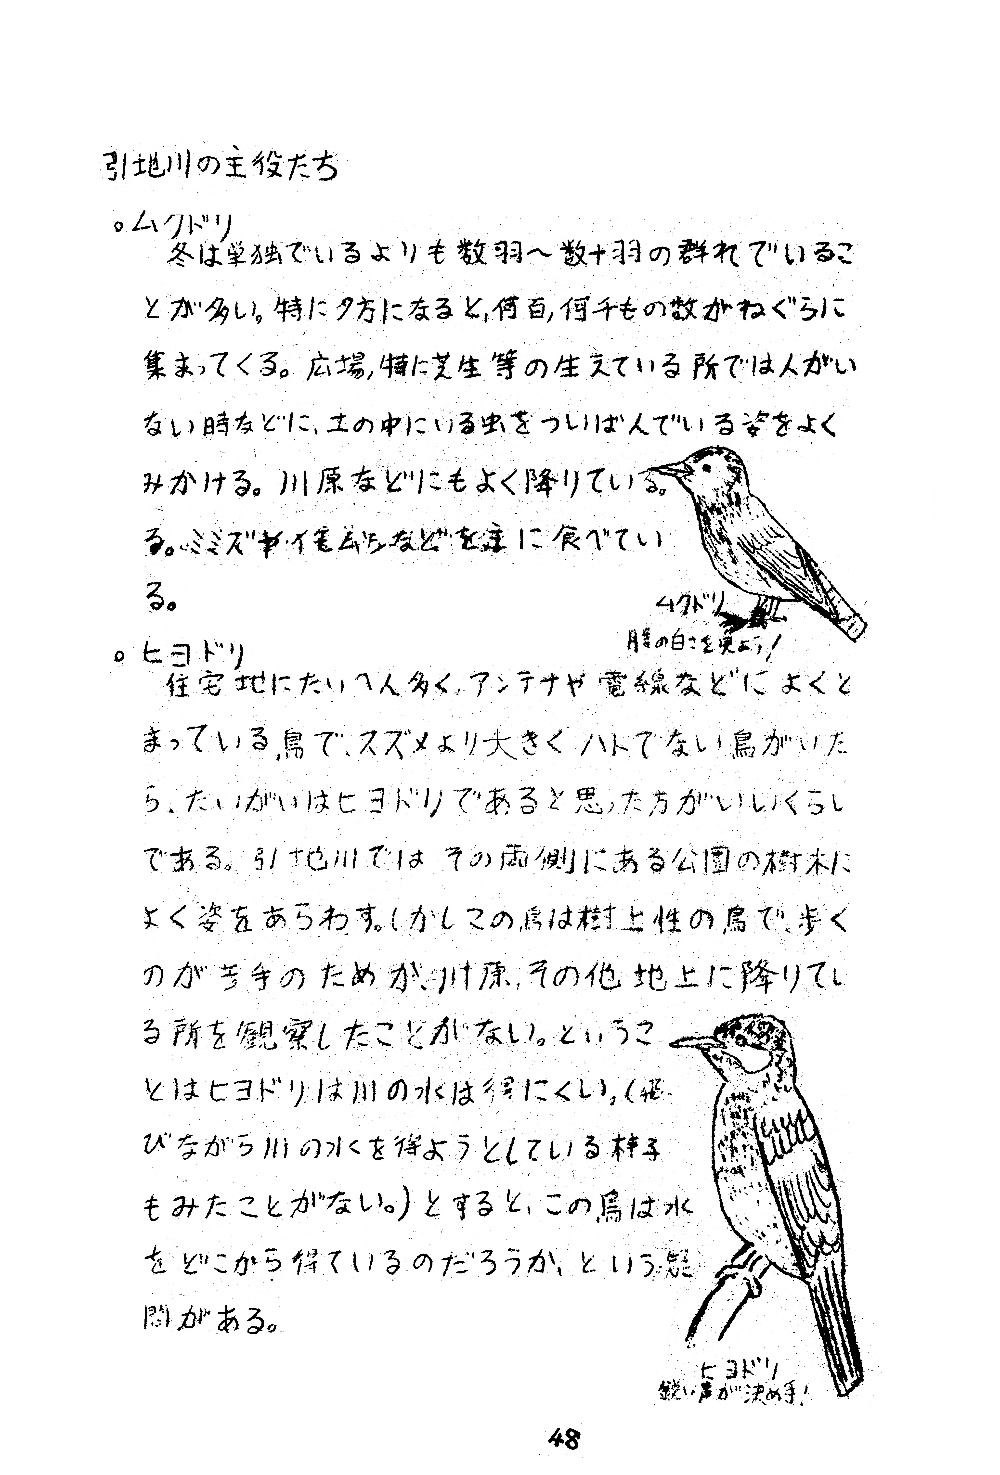 引地川の主役たち
。ムクドリ
冬は単独でいるよりも数羽〜数十羽の群れでいるこ
とが多い。特に夕方になると,何百,何千もの数がねぐらに
集まってくる。広場,特に芝生等の生えている所では人がい
ない時などに、土の中にいる虫をついばんでいる姿をよく
みかける。川原などにもよく降りている。
る。ミミズや などを主に食べてい
る。
ムクドリ
腰の白さを見よう!
。ヒヨドリ
住宅地にたいへん多く、アンテナや電線などによくと
まっている鳥で、スズメより大きくハトでない鳥がいた
ら、たいがいはヒヨドリであると思った方がいいくらい
である。引地川ではその両側にある公園の樹木に
よく姿をあらわす。しかしこの鳥は樹上性の鳥で、歩く
のが苦手のためか、川原,その他地上に降りてい
る所を観察したことがない。というこ
とはヒヨドリは川の水は得にくい。(飛
びながら川の水を得ようとしている様子
もみたことがない。)とすると、この鳥は水
をどこから得ているのだろうか、という疑
問がある。
ヒヨドリ
鋭い声が決め手!
48